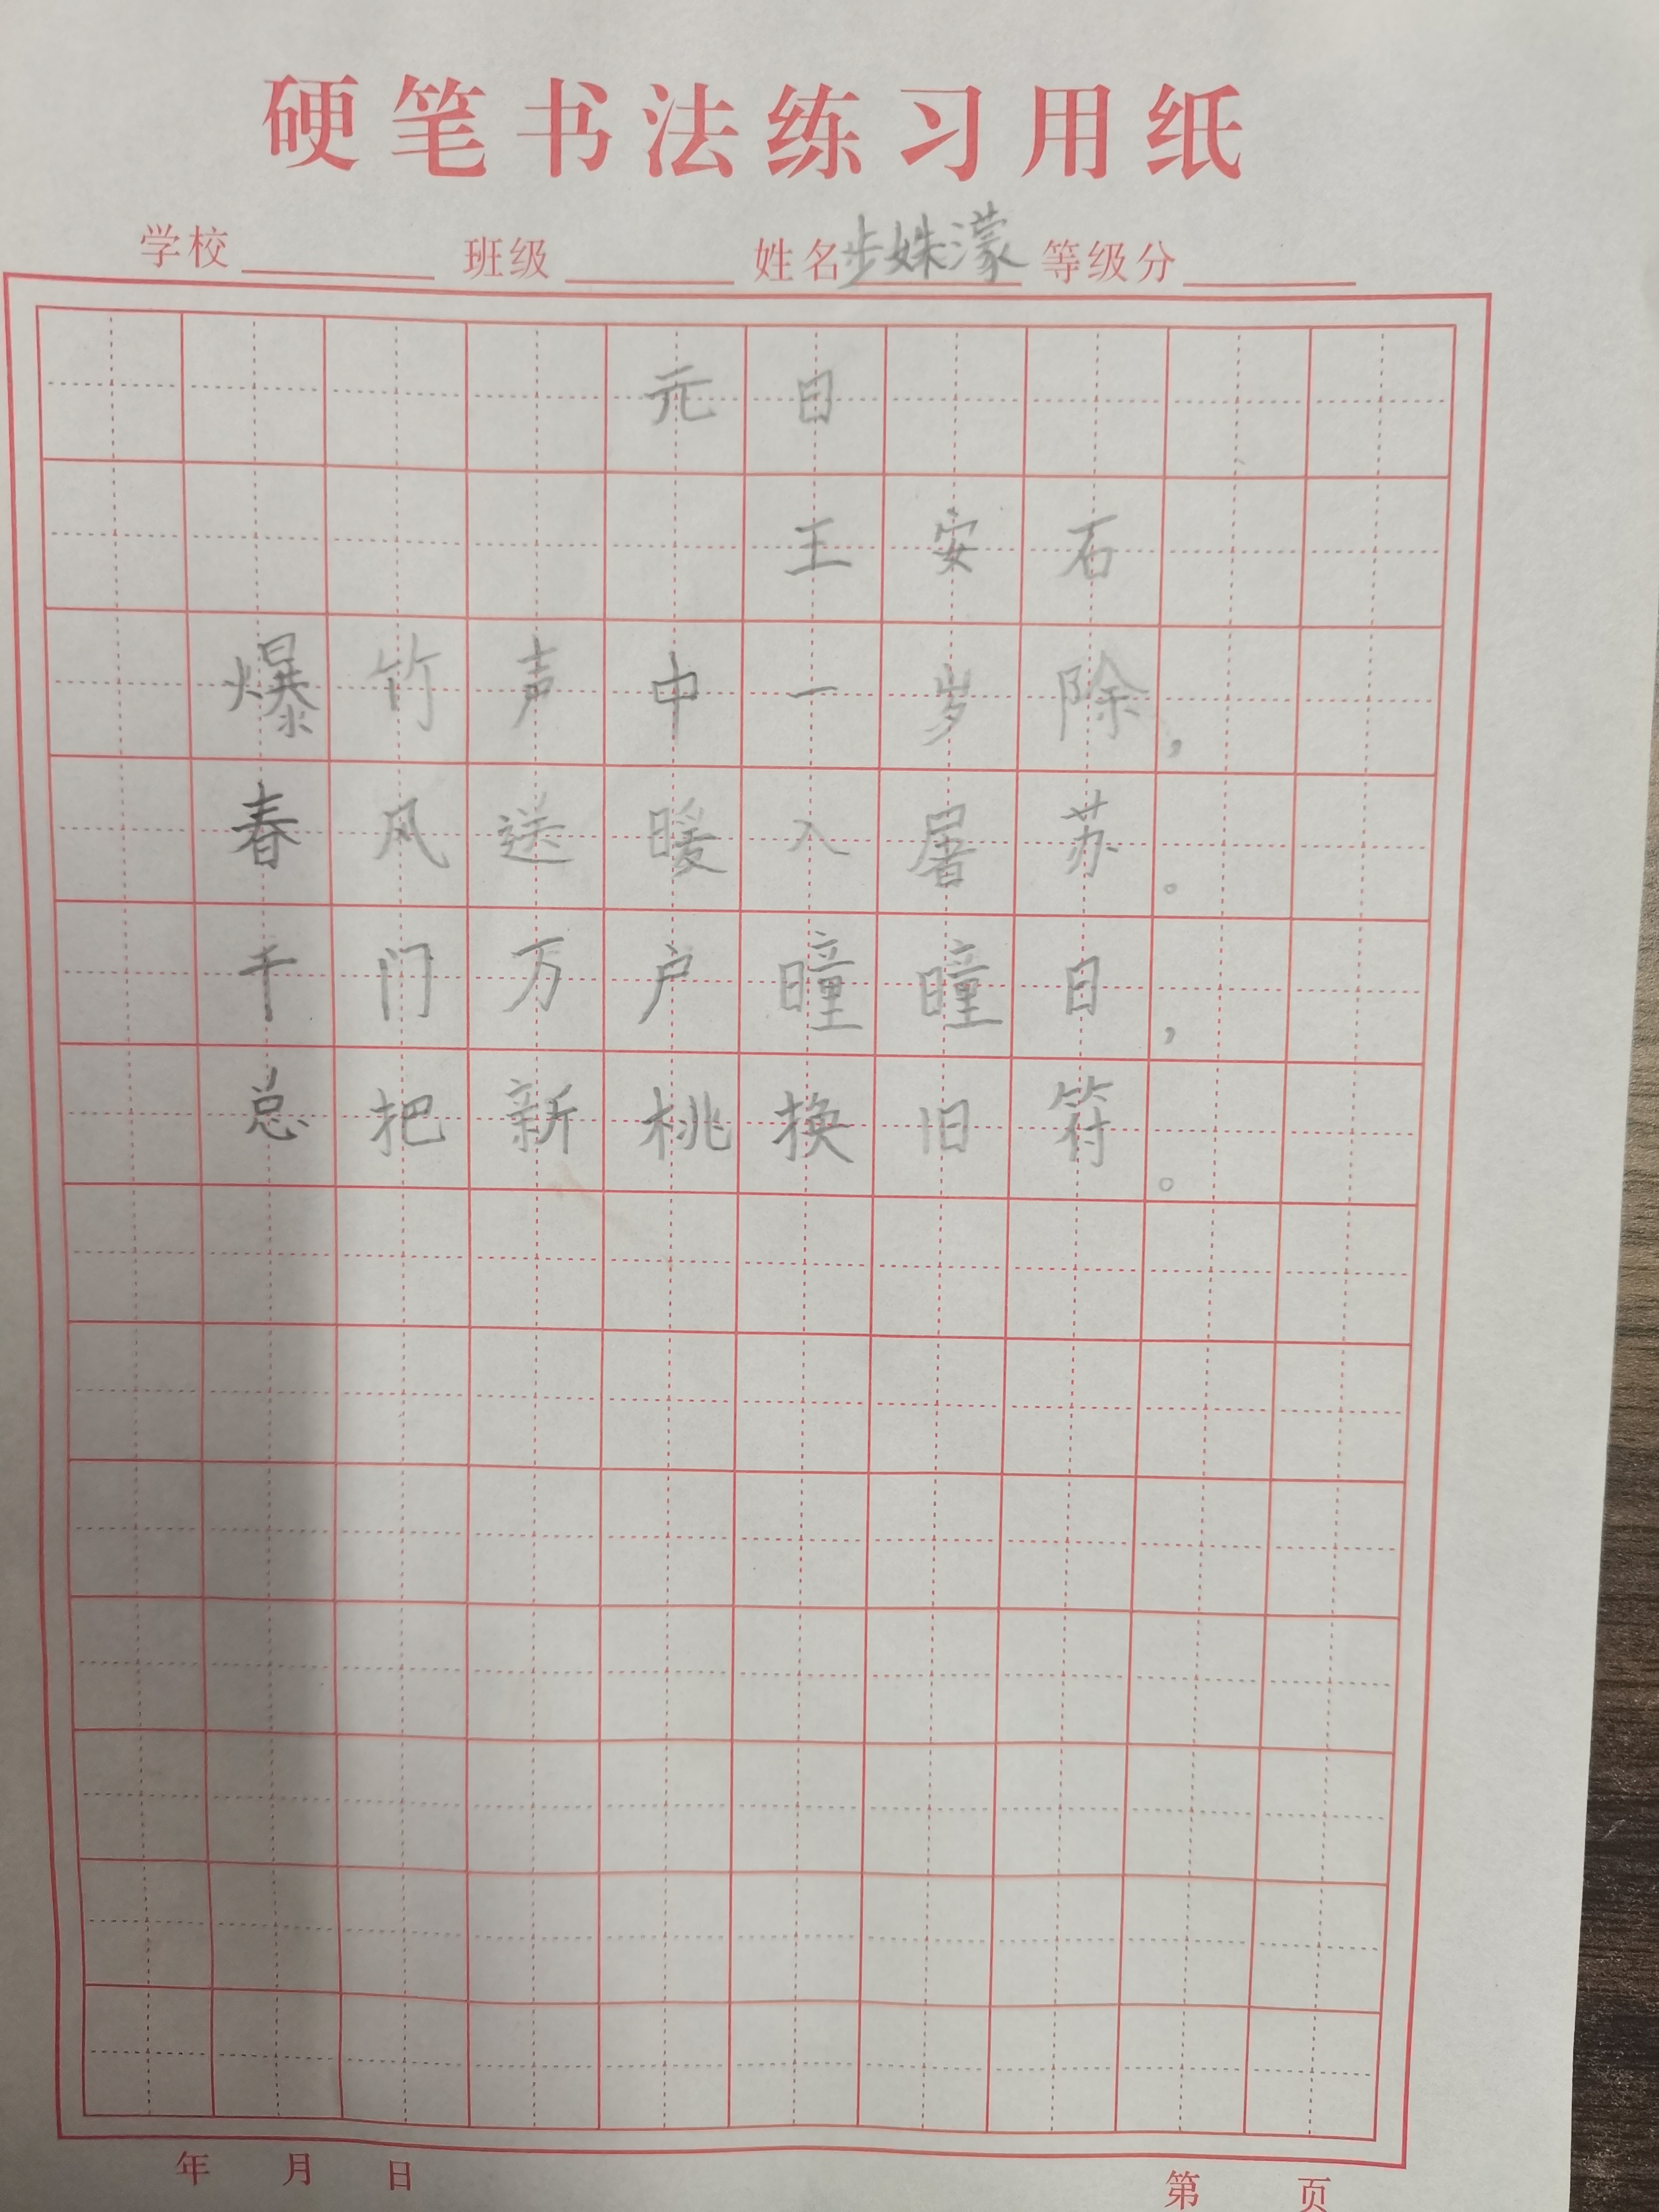 硬笔书法练习用纸
学校 班级 姓名步姝濛 等级分
元日
王安石
爆竹声中一岁除，
春风送暖入屠苏。
千门万户曈曈日，
总把新桃换旧符。
年 月 日 第 页